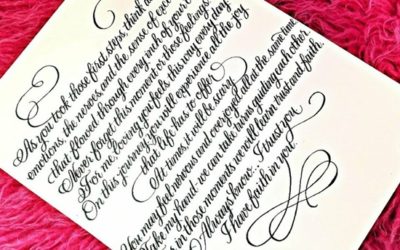 As you took those first steps, think a
emotions, the nerves, and the sense of exci
that flowed through every inch of your
Never forget this moment or those feelings
For me, loving you feels this way every day
On this journey you will experience all the joy
that life has to offer.
At times, it will be scary
You may feel nervous and overjoyed all at the same time
Take my hand, we can take turns guiding each other
in those moments we will learn trust and faith.
Always know, I trust you
I have faith in you